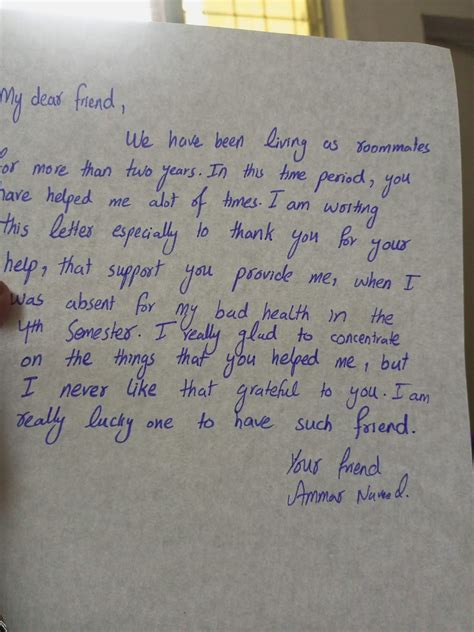 My dear friend,
We have been living as roommates
for more than two years. In this time period, you
have helped me alot of times. I am writing
this letter especially to thank you for your
help, that support you provide me, when I
was absent for my bad health in the
4th Semester. I really glad to concentrate
on the things that you helped me, but
I never like that grateful to you. I am
really lucky one to have such friend.
Your friend
Ammar Naveed.